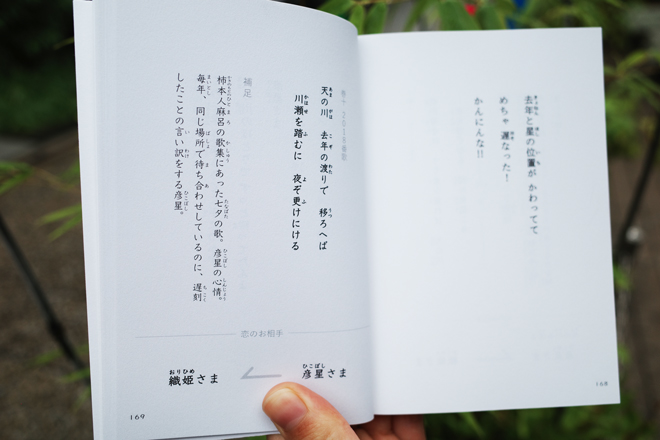 去年と星の位置が かわってて
めちゃ 遅なった!
かんにんな!!
168
巻十・2018番歌
天の川 去年の渡りで 移ろへば
川瀬を踏むに 夜ぞ更けにける
補足
柿本人麻呂の歌集にあった七夕の歌。彦星の心情。
毎年、同じ場所で待ち合わせしているのに、遅刻
したことの言い訳をする彦星。
恋のお相手
彦星さま
織姫さま
169